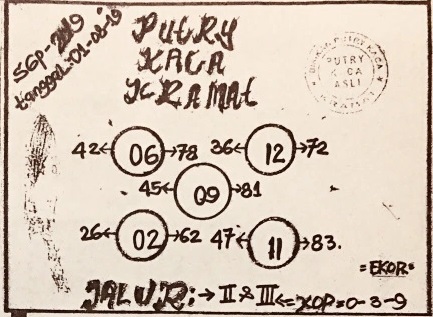 SGP-2019
tanggal:01-08-19
PUTRY
KACA
KRAMAt
PUTRY
KACA
ASLI
KRAMAT
42←06→78 36←12→72
45←09→81
26←02→62 47←11→83.
=EKOR=
JALUR:→II&III<=KOP=0-3-9